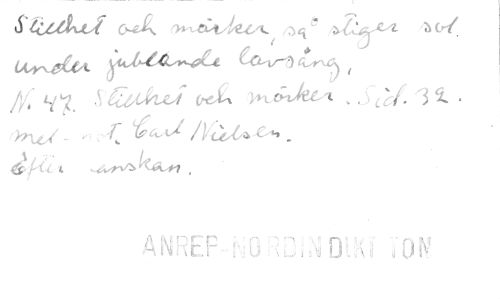 Stillhet och mörker, så stiger sol
under jublande lovsång,
N. 47. Stillhet och mörker. Sid. 32.
mel-not. Carl Nielsen.
Efter danskan.
ANREP-NORDIN DIKT TON